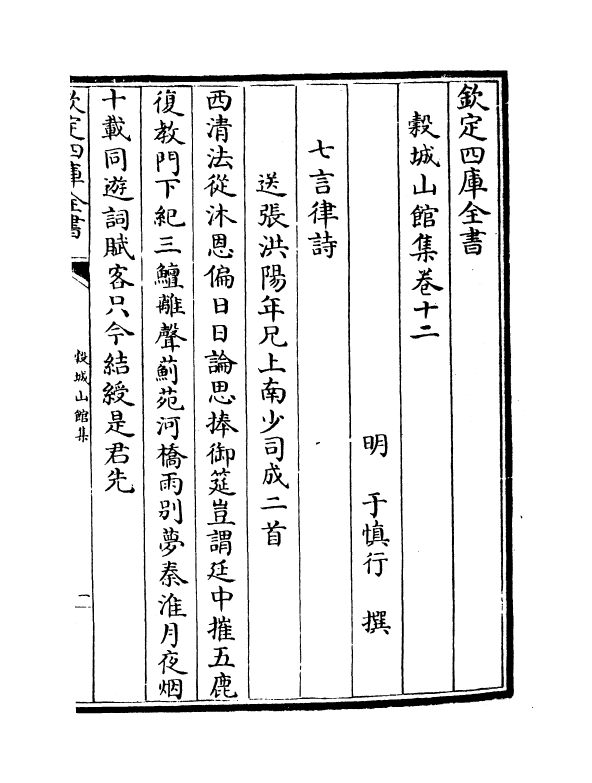 欽定四庫全書
榖城山館集卷十二
明　于慎行　撰
七言律詩
送張洪陽年兄上南少司成二首
西清法從沐恩偏日日論思捧御筵豈謂廷中摧五鹿
復教門下紀三鱣離聲薊苑河橋雨别夢秦淮月夜烟
十載同遊詞賦客只今結綬是君先
欽定四庫全書
榖城山館集
一